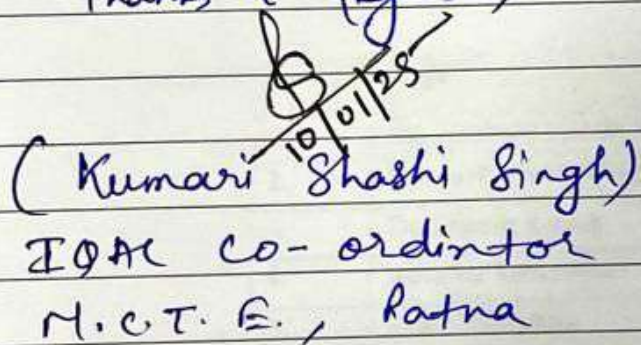 10/01/25
(Kumari Shashi Singh)
IQAC Co-ordintor
M.C.T.E., Patna